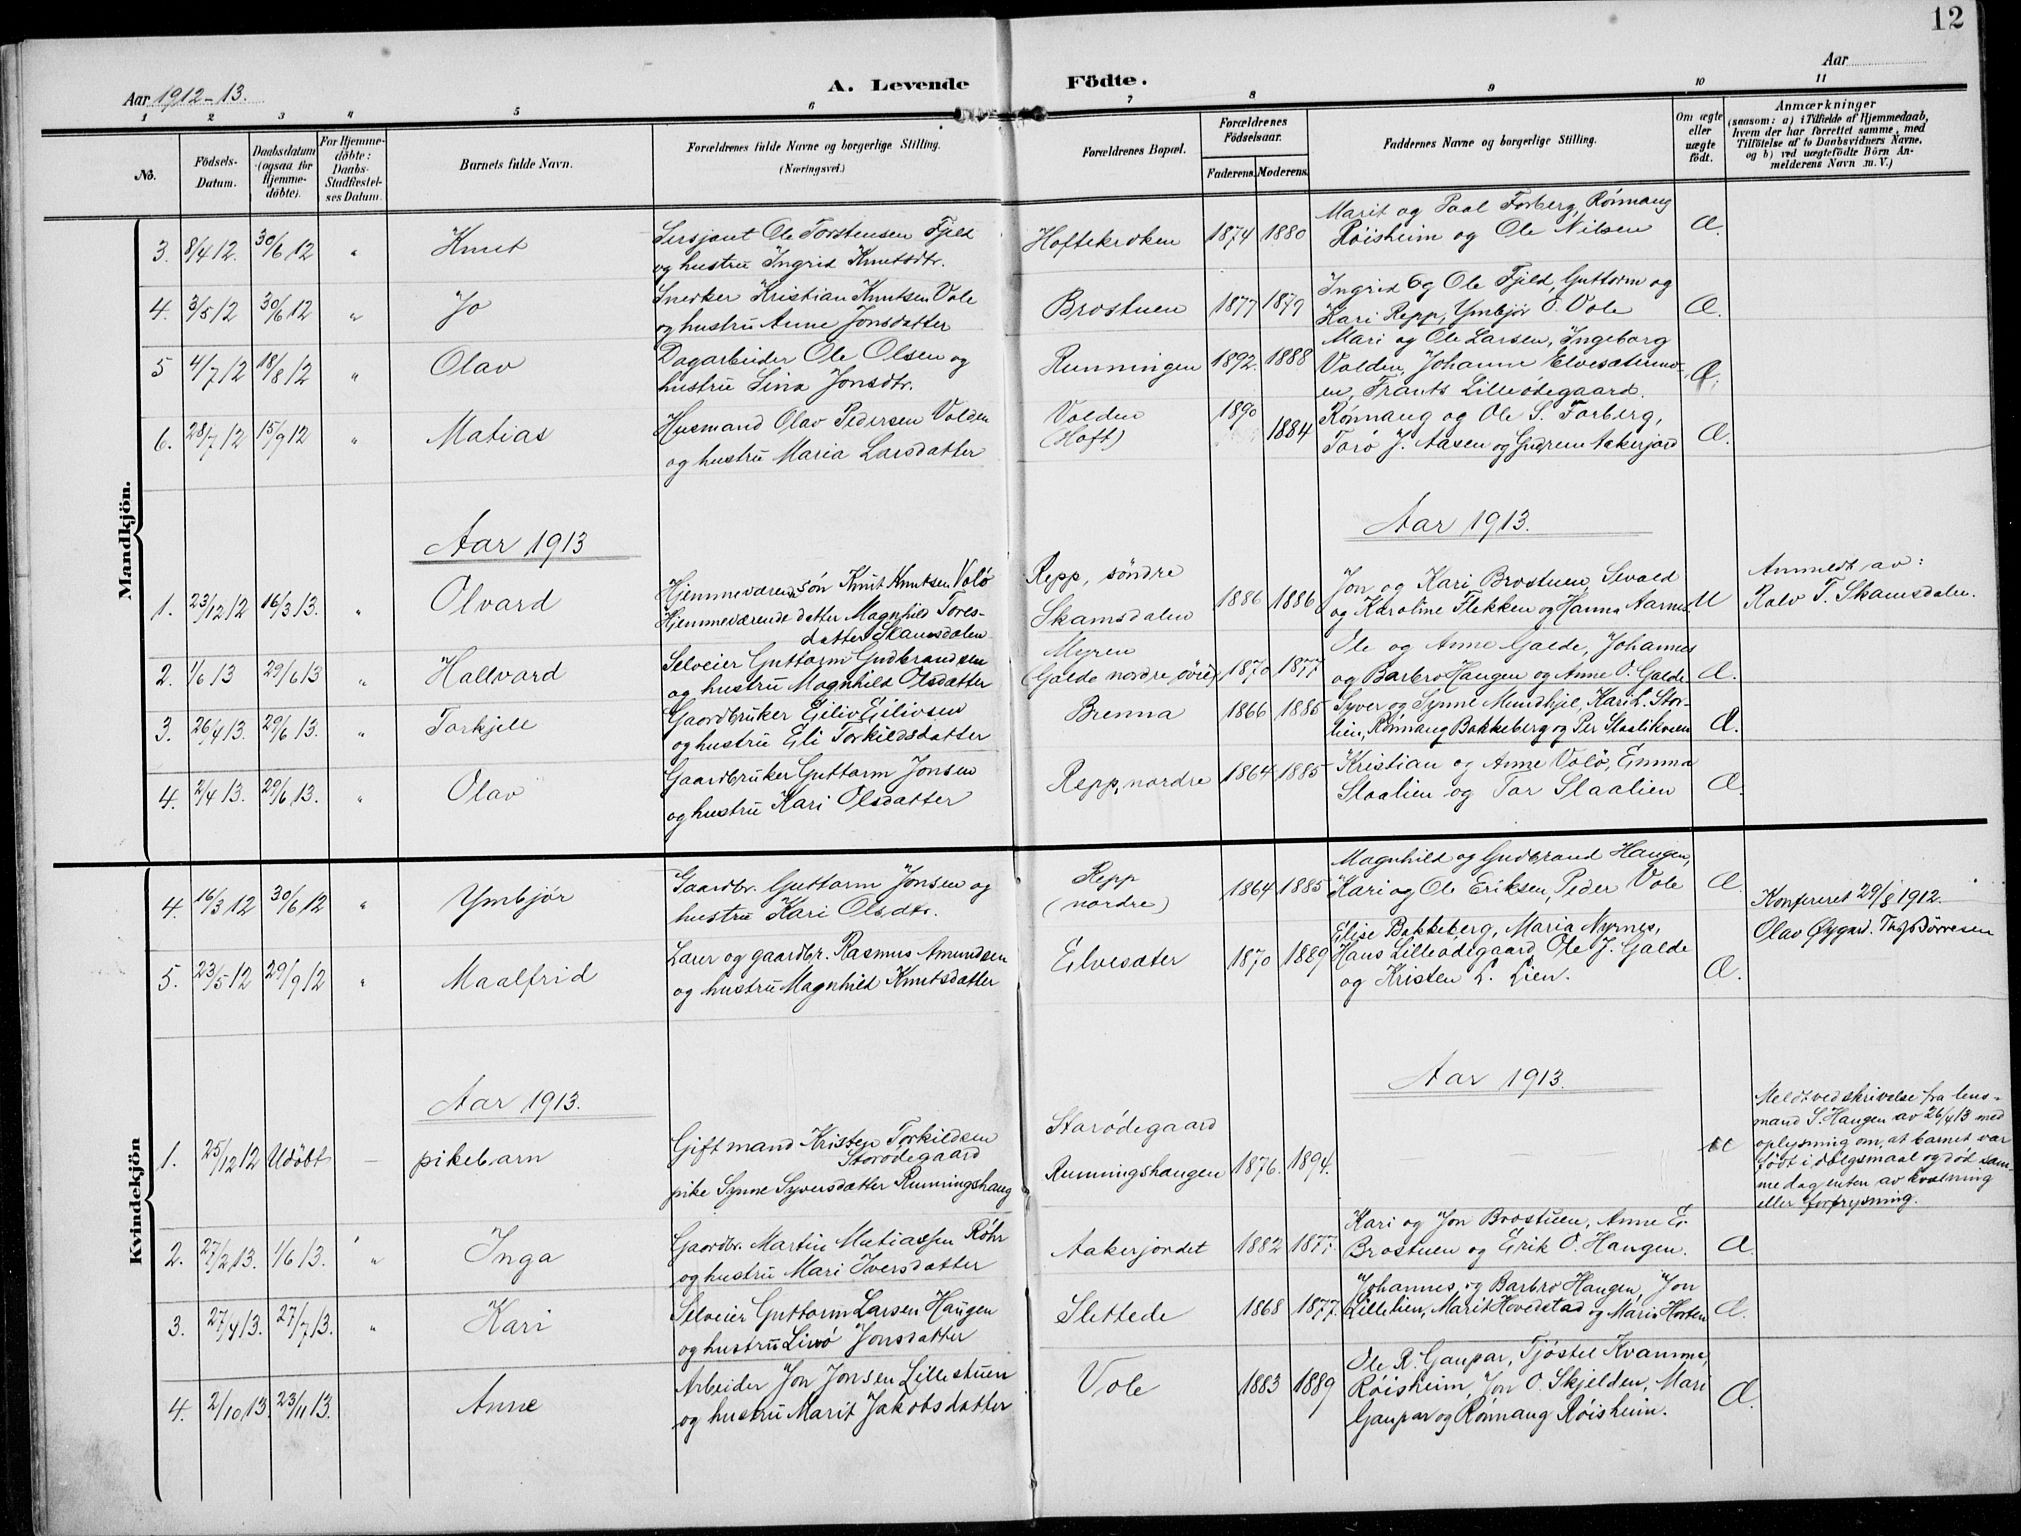 12
Aar 1912-13.
A. Levende Födte.
Aar
1 2 3 4 5 6 7 8 9 10 11
No.
Födsels-Datum.
Daabsdatum (ogsaa for Hjemmedöbte).
For Hjemmedöbte: Daabs-Stadfæstelses Datum.
Barnets fulde Navn.
Forældrenes fulde Navne og borgerlige Stilling. (Næringsvei.)
Forældrenes Bopæl.
Forældrenes Födselsaar.
Faderens. Moderens.
Faddernes Navne og borgerlige Stilling.
Om ægte eller uægte födt.
Anmærkninger (saasom: a) i Tilfælde af Hjemmedaab, hvem der har forrettet samme, med Tilföielse af to Daabsvidners Navne, og b) ved uægtefödte Börn Anmelderens Navn m. V.)
Mandkjön.
3. 8/4 12. 30/6 12 " Knut
Sersjant Ole Torstensen Fjeld
og hustru Ingrid Knutsdtr.
Hoftekroken 1874 1880
Marit og Paal Forberg, Rönnaug
Röisheim og Ole Nilsen
Æ.
4. 3/5 12 30/6 12 " Jo
Snedker Kristian Knutsen Vole
og hustru Anne Jonsdatter
Brostuen 1877 1879
Ingrid og Ole Fjeld, Guttorm og
Kari Repp, Ymbjör O. Vole
Æ.
5 4/7 12 18/8 12 " Olav
Dagarbeider Ole Olsen og
hustru Lina Jonsdtr.
Runningen 1892. 1888
Mari og Ole Larsen, Ingeborg
Volden, Johanne Elvesætermo-
en, Frants Lilleödegaard.
Æ.
6. 28/7 12 15/9 12 " Matias
Husmand Olav Pedersen Volden
og hustru Maria Larsdatter
Volden
(Hoft)
1890 1884
Rönnaug og Ole S. Forberg,
Torö J. Aasen og Gudrun Aakerjord
Æ.
Aar 1913
Aar 1913.
1. 23/12 12 16/3 13. " Olvard
Hjemmeværende sön Knut Knutsen Volö
Hjemmeværende datter Magnhild Tores-
datter Skamsdalen
Repp, söndre
Skamsdalen
1886 1886
Jon og Kari Brostuen, Sevald
og Karoline Flekken og Hanna Aarnes
U
Anmeldt av:
Rolv T. Skamsdalen.
2. 1/6 13 29/6 13 " Hallvard
Selveier Guttorm Gudbrandsen
og hustru Magnhild Olsdatter
Myren
(Galde nordre, övre)
1870 1877
Ole og Anne Galde, Johannes
og Barbro Haugen og Anne O. Galde
Æ.
3. 26/4 13. 29/6 13. " Torkjell
Gaardbruker Eiliv Eilivsen
og hustru Eli Torkildsdatter
Brenna 1866 1885
Syver og Synne Mundhjel, Kari L. Stor-
lien, Rönnaug Bakkeberg og Per Slaalikveen
Æ.
4. 2/4 13. 29/6 13. " Olav
Gaardbruker Guttorm Jonsen
og hustru Kari Olsdatter
Repp, nordre 1864 1885
Kristian og Anne Volö, Emma
Slaalien og Tor Slaalien
Æ.
Kvindekjön
4. 16/3 12 30/6 12 " Ymbjör
Gaardbr. Guttorm Jonsen og
hustru Kari Olsdtr.
Repp
(nordre)
1864 1885
Magnhild og Gudbrand Haugen,
Kari og Ole Eriksen, Peder Vole
Æ.
Konfereret 29/8 1912.
Olav Øygard.
5. 23/5 12 29/9 12 " Maalfrid
Lærer og gaardbr. Rasmus Amundsen
og hustru Magnhild Knutsdatter
Elvesæter 1870 1889
Elise Bakkeberg, Maria Nyrnes,
Hans Lilleödegaard, Ole J. Galde
og Kristen L. Lien.
Æ.
Aar 1913.
Aar 1913.
1. 25/12 12 Udöbt — pikebarn
Gift mand Kristen Torkildsen
Storödegaard
pike Synne Syversdatter Runningshaug
Storödegaard
Runningshaugen
1876. 1894.
U
Meldt ved skrivelse fra lens-
mand S. Haugen av 26/4 13 med
oplysning om, at barnet var
födt i dölgsmaal og död sam-
me dag enten av kvælning
eller forfrysning.
2. 27/2 13. 1/6 13. " Inga
Gaardbr. Martin Matiassen Röhr
og hustru Mari Iversdatter
Aakerjordet 1882 1877.
Kari og Jon Brostuen, Anne E.
Brostuen og Erik O. Haugen.
Æ.
3. 27/4 13. 27/7 13. " Kari
Selveier Guttorm Larsen Haugen
og hustru Livö Jonsdatter
Slettede 1868 1877.
Johannes og Barbro Haugen, Jon
Lillelien, Marit Hovdstad og Maria Hosten
Æ.
4. 2/10 13. 23/11 13. Anne
Arbeider Jon Jonsen Lillestuen
og hustru Marit Jakobsdatter
Vole 1883 1889
Ole R. Gaupar, Tjöstel Kvamme,
Röisheim, Jon O. Skjelden, Mari
Gaupar og Rönnaug Röisheim.
Æ.